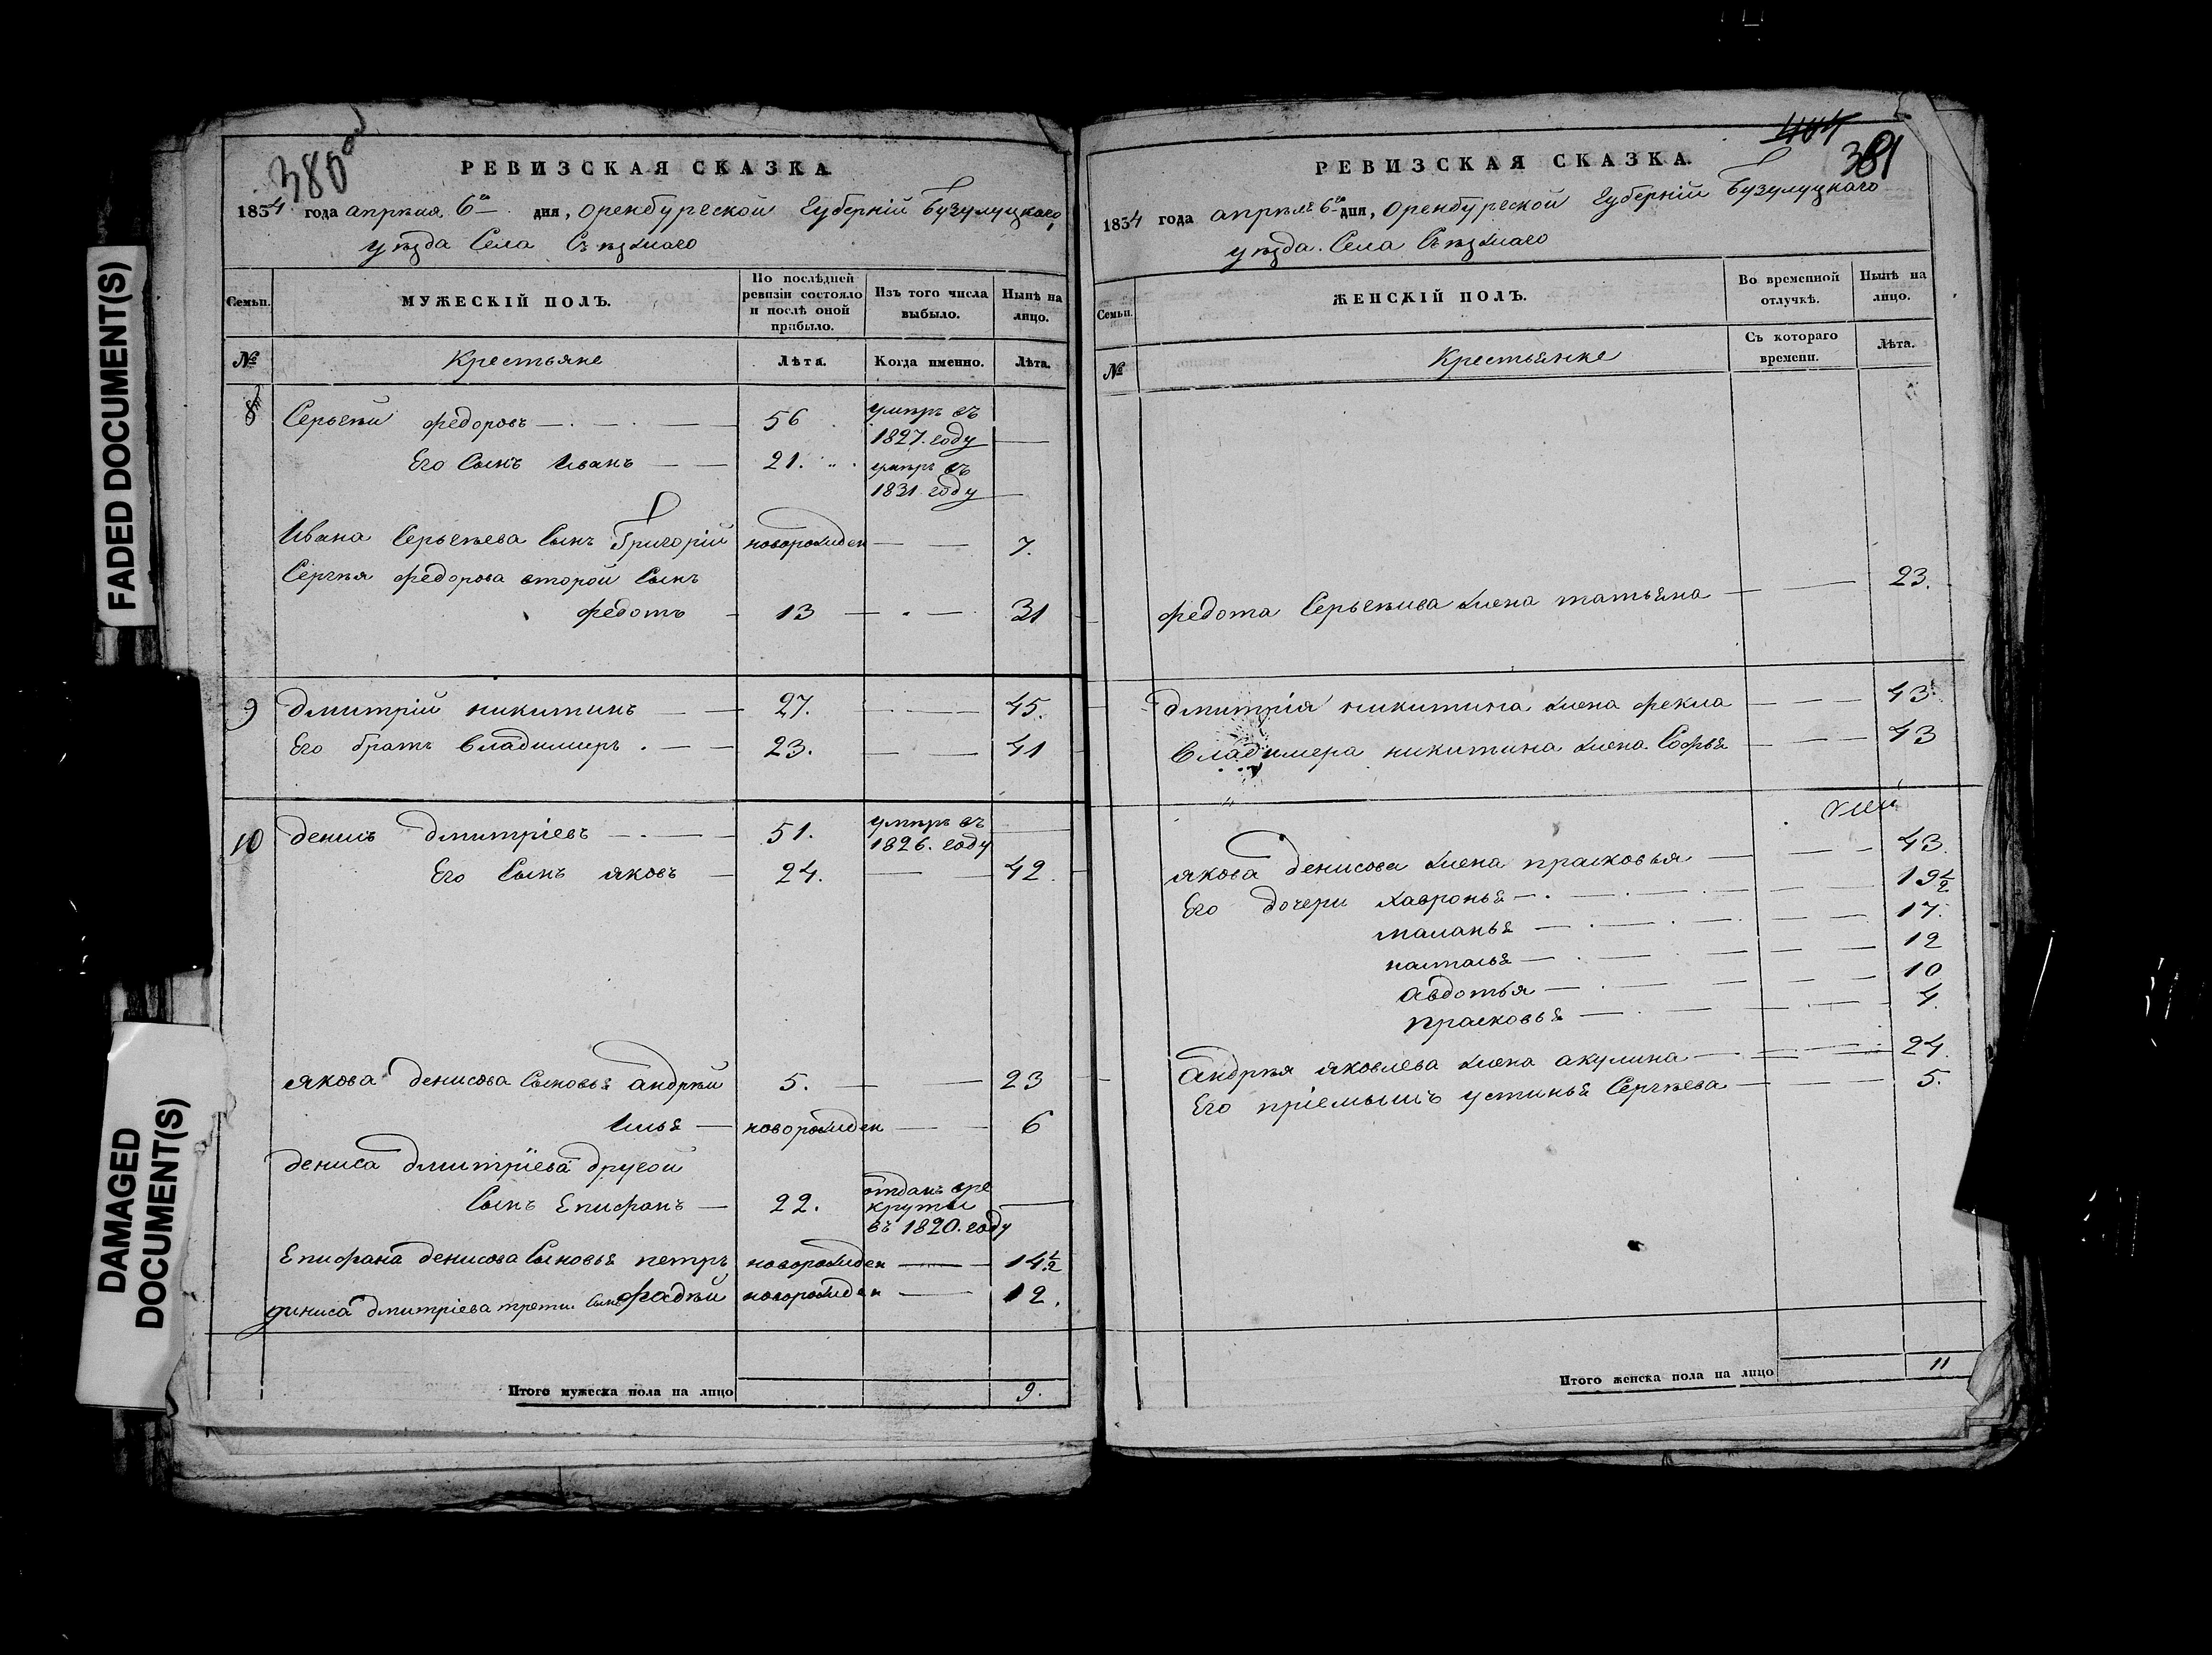 FADED DOCUMENT(S)
DAMAGED
DOCUMENT(S)
380
РЕВИЗСКАЯ СКАЗКА
1834 года апреля 6го дня, Оренбургской Губерніи Бузулуцкаго
уѣзда Села Съѣзжаго
Семьи.
МУЖЕСКІЙ ПОЛЪ.
По послѣдней ревизіи состояло и послѣ оной прибыло.
Изъ того числа выбыло.
Нынѣ на лицо.
№
Крестьяне
Лѣта.
Когда именно.
Лѣта.
8
Сергѣй федоровъ 56 умеръ въ 1827. году
Его Сынъ Иванъ 21. умеръ въ 1831 году
Ивана Сергѣева Сынъ Григорій новорожден 7.
Сергѣя федорова второй Сынъ
федотъ 13 31
9 дмитрій никитинъ 27. 45.
Его братъ владимиръ. 23. 41
10 денисъ дмитріевъ 51. умеръ въ 1826. году
Его Сынъ яковъ 24. 42
якова денисова Сыновья андрѣй 5. 23
Илья новорожден 6
дениса дмитріева другой
Сынъ Епифанъ 22. отданъ вре
круты
въ 1820. году
Епифана денисова Сыновья петръ новорожден 14½
дениса дмитріева трети Сынъ фадѣй новорожден 12.
Итого мужеска пола на лицо 9.
404
381
РЕВИЗСКАЯ СКАЗКА.
1834 года апрѣля 6го дня, Оренбургской Губерніи Бузулуцкаго
уѣзда. Села Съѣзжаго
Семьи.
ЖЕНСКІЙ ПОЛЪ.
Во временной отлучкѣ.
Нынѣ на лицо.
№
Крестьянке
Съ котораго времени.
Лѣта.
федота Сергѣива жена татьяна 23.
дмитрія никитина жена фекла 43.
владимера никитина жена Софья 43
якова денисова жена прасковья 43
Его дочери хавронья 19½
маланья 17.
настасья 12
авдотья 10
прасковья 4.
андрѣя яковлева жена акулина 24.
Его пріемышъ устинья Сергѣева 5.
Итого женска пола на лицо 11